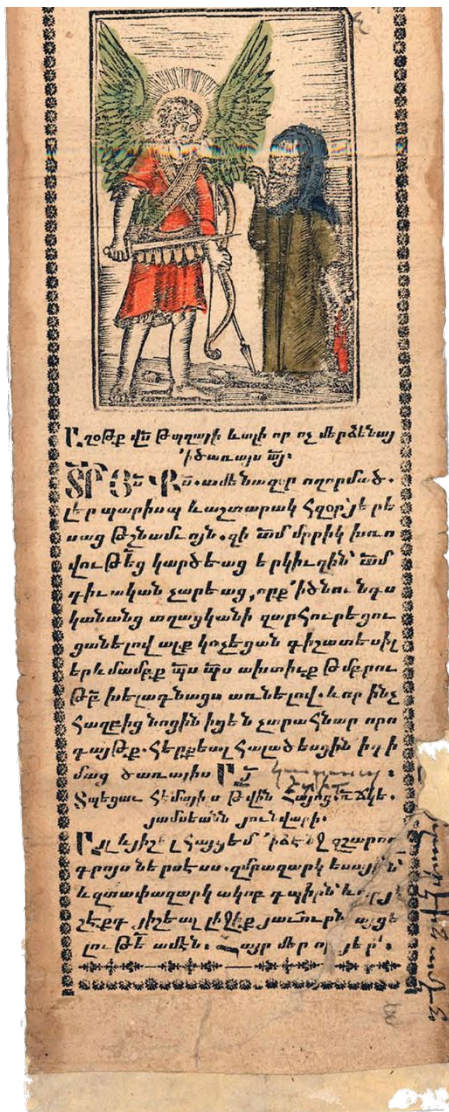 Աղօթք վս թպղայի և ալի որ ոչ մերձենայ
՚ի ծառայս ա՟յ։
ՏՐ ՅՍ ՔՍ. ամենազօր ողորմած.
լեր պարիսպ և աշտարակ հզօր յերե
սաց թշնամւոյն. զի ա՟մ մրրիկ խռո
վութեց կարծեաց երկիւղին՝ ա՟մ
դիւական չարեաց, որք ՚ի ծնունդս
կանանց տղայկանի զարհուրեցու
ցանելով ալք կոչեցան գիշատեսիլ
երևմամբք պս պս ախտիւք թմբրու
թբ խելագնացս առնելով. և որ ինչ
հաղբից նոցին իցեն չարահնար որո
գայթք. հերքեալ հալածեսցին իլի
մաց ծառայիս ԱՅ
Տպեցաւ հեմայիս թվին Հայոց ՌՃՀԸ.
յամսեանն յունվարի.
Այլ և յիշել հայցեմ ՚ի ձէնջ զշարող
գրոյս ներսէսս. զմրազարկ եսային՝
և զտափազարկ ակոբ դպիրն՝ և որ յի
շէքդ յիշեալ լիջիք յաւուրն այցե
լութե՟ ամէն. Հայր մեր որ յեր՛.